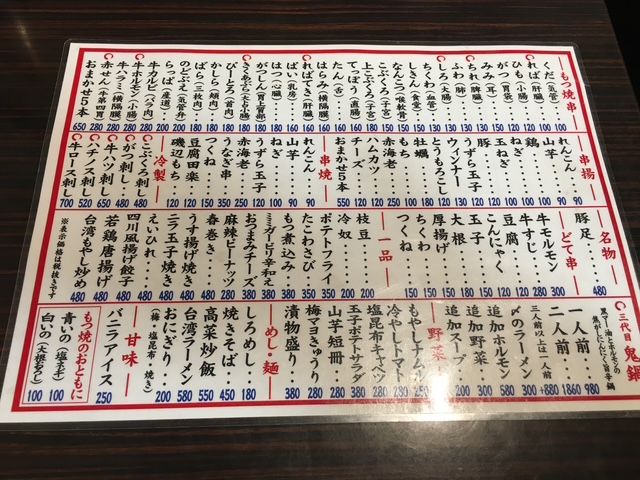 もつ焼串
くだ(気管)‥100
れば(肝臓)‥100
ひも(小腸)‥100
がつ(胃袋)‥120
みみ(耳)‥120
ちれ(脾臓)‥130
ふわ(肺)‥130
しろ(大腸)‥130
ちくわ(血管)‥150
しきん(食堂)‥150
なんこつ(喉軟骨)‥150
こぶくろ(子宮)‥150
上こぶくろ(子宮)
てっぽう(直腸)
たん(舌)
はらみ(横隔膜)
ればてき(肝臓)
ぱい(乳房)
はつ(心臓)
がつしん(胃上背部)
ぴーとろ(首肉)
かしら(頬肉)
ばら(三枚肉)
のどぶえ(気管弁)
らっぱ(産道)‥200
牛カルビ(バラ肉)‥200
牛ホルモン(小腸)
牛ハラミ(横隔膜)
赤せん(牛第四胃)280
おまかせ5本 650
串揚
れんこん‥90
山芋‥90
鶏
ねぎ
玉ねぎ‥120
豚
うずら玉子
ウィンナー
とうもろこし
牡蠣
もち
赤海老
ハムカツ
チーズ‥120
おまかせ5本 550
串焼
れんこん‥90
山芋‥90
ねぎ‥100
うずら玉子
赤海老
うなぎ串
つくね
豆腐田楽
磯辺もち‥120
冷製
こぶくろ刺し‥480
がつ刺し‥480
牛ハツ刺し
ハチノス刺し 520
牛ロース刺し 700
名物
豚足‥580
どて串
牛モルモン
牛すじ
豆腐
こんにゃく
玉子
大根
厚揚げ
もち
つくね
一品
枝豆
冷奴
ポテトフライ 350
たこわさび 350
もつ煮込み 380
ミミガーピリ辛和え 380
おつまみチーズ 380
麻辣ピーナッツ
春巻き
うす揚げ焼き
ニラ玉子焼き 480
えいひれ‥480
四川風揚げ餃子 480
若鶏唐揚げ 480
台湾もやし炒め 480
※表示価格は税抜きです
三代目鬼鍋
黒マー油とホルモンの
焦がしにんにく旨辛鍋
一人前‥980
二人前‥1860
三人前以上は一人前+880
〆のラーメン‥300
追加ホルモン 580
追加野菜‥300
追加スープ‥200
野菜
もやしナムル
冷やしトマト
塩昆布キャベツ 280
玉子ポテトサラダ 380
山芋短冊‥380
梅マヨきゅうり 280
漬物盛り‥380
めし・麺
しろめし‥180
焼きそば‥450
高菜炒飯‥550
台湾ラーメン 580
おにぎり‥200
(梅・塩昆布・焼き)
甘味
バニラアイス 250
もつ焼のおともに
青いの(塩ネギ) 100
白いの(大根おろし) 100